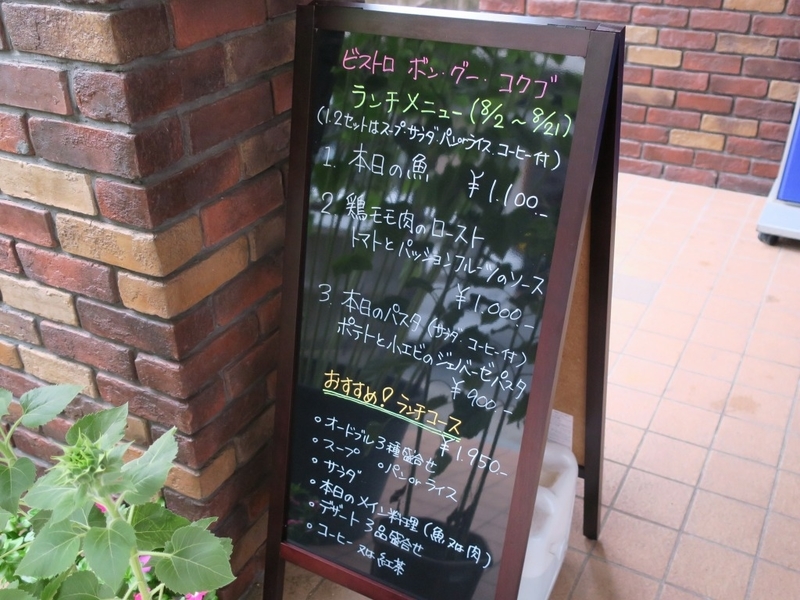 ビストロ ボン・グー・コクブ
ランチメニュー(8/2〜8/21)
(1.2セットはスープ・サラダ・パンorライス、コーヒー付)
1. 本日の魚
¥1.100.-
2. 鶏モモ肉のロースト
トマトとパッションフルーツのソース
¥1.000.-
3. 本日のパスタ(サラダ・コーヒー付)
ポテトと小エビのジェノバーゼパスタ
¥900.-
おすすめ!ランチコース
¥1.950.-
○オードブル3種盛合せ
○スープ ○パンorライス
○サラダ
○本日のメイン料理(魚又は肉)
○デザート3品盛合せ
○コーヒー又は紅茶